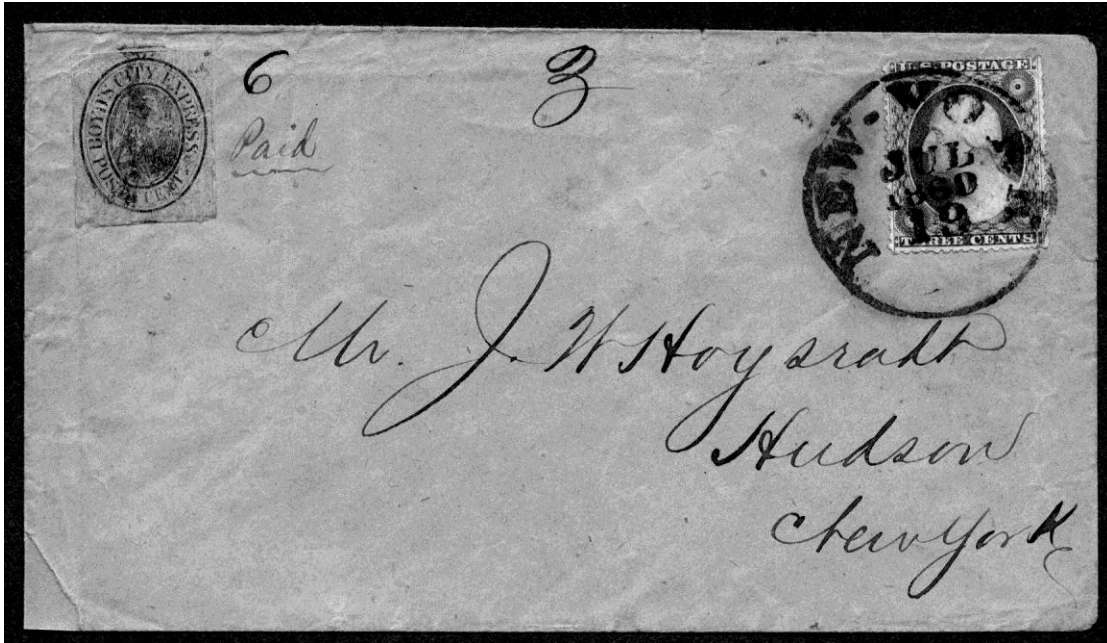 BOYD'S CITY EXPRESS
POST CENT
6
Paid
3
U.S. POSTAGE
THREE CENTS
NEW-
JUL
1860
19
Mr. J. W Hoysradt
Hudson
New York